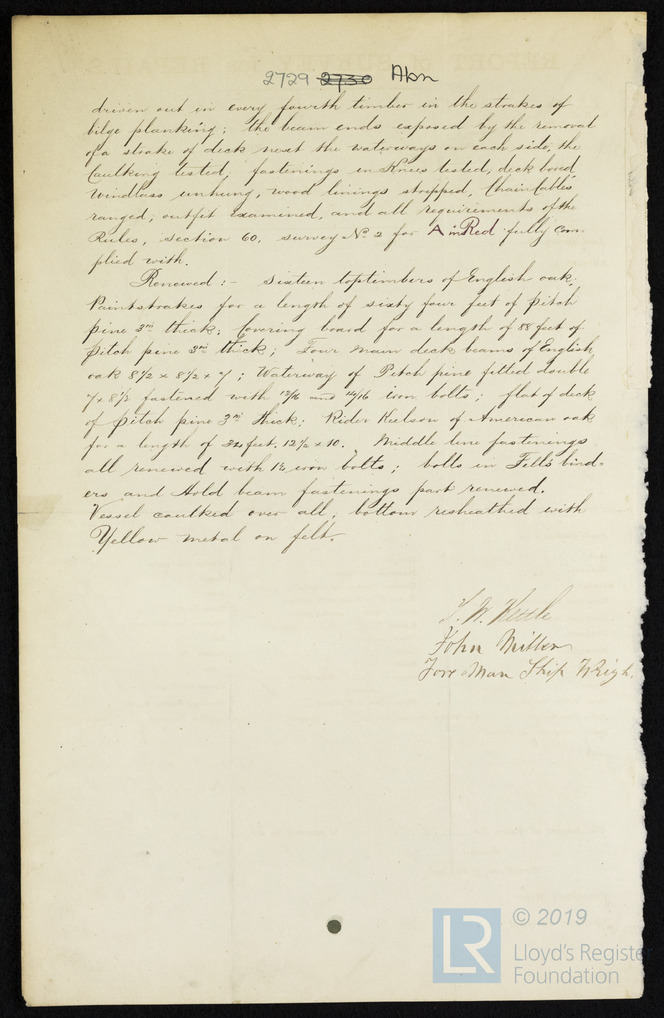 2729 2730 Abn
driven out in every fourth timber in the strakes of
bilge planking; the beam ends exposed by the removal
of a strake of deck next the waterways on each side, the
Caulking tested, fastenings in Knees tested, deck bored,
Windlass unhung, wood linings stripped, Chain Cables
ranged, outfit examined, and all requirements of the
Rules, Section 60, survey No. 2 for A in Red fully com-
plied with.
Renewed :- Sixteen toptimbers of English oak,
Paintstrakes for a length of sixty four feet of pitch
pine 3in thick; Covering board for a length of 88 feet of
pitch pine 3in thick; Four main deck beams of English
oak 8½ x 8½ x 7; Waterway of Pitch pine fitted double
7 x 8½ fastened with and iron bolts; flat of deck
of pitch pine 3in thick; Rider Keelson of American oak
for a length of feet, 12½ x 10. Middle line fastenings
all renewed with iron bolts; bolts in Fell's bind-
ers and Hold beam fastenings part renewed.
Vessel caulked over all, bottom resheathed with
Yellow metal on felt.
T. W.
John Miller
Fore Man Ship Wrigh.
LR © 2019
Lloyd's Register
Foundation